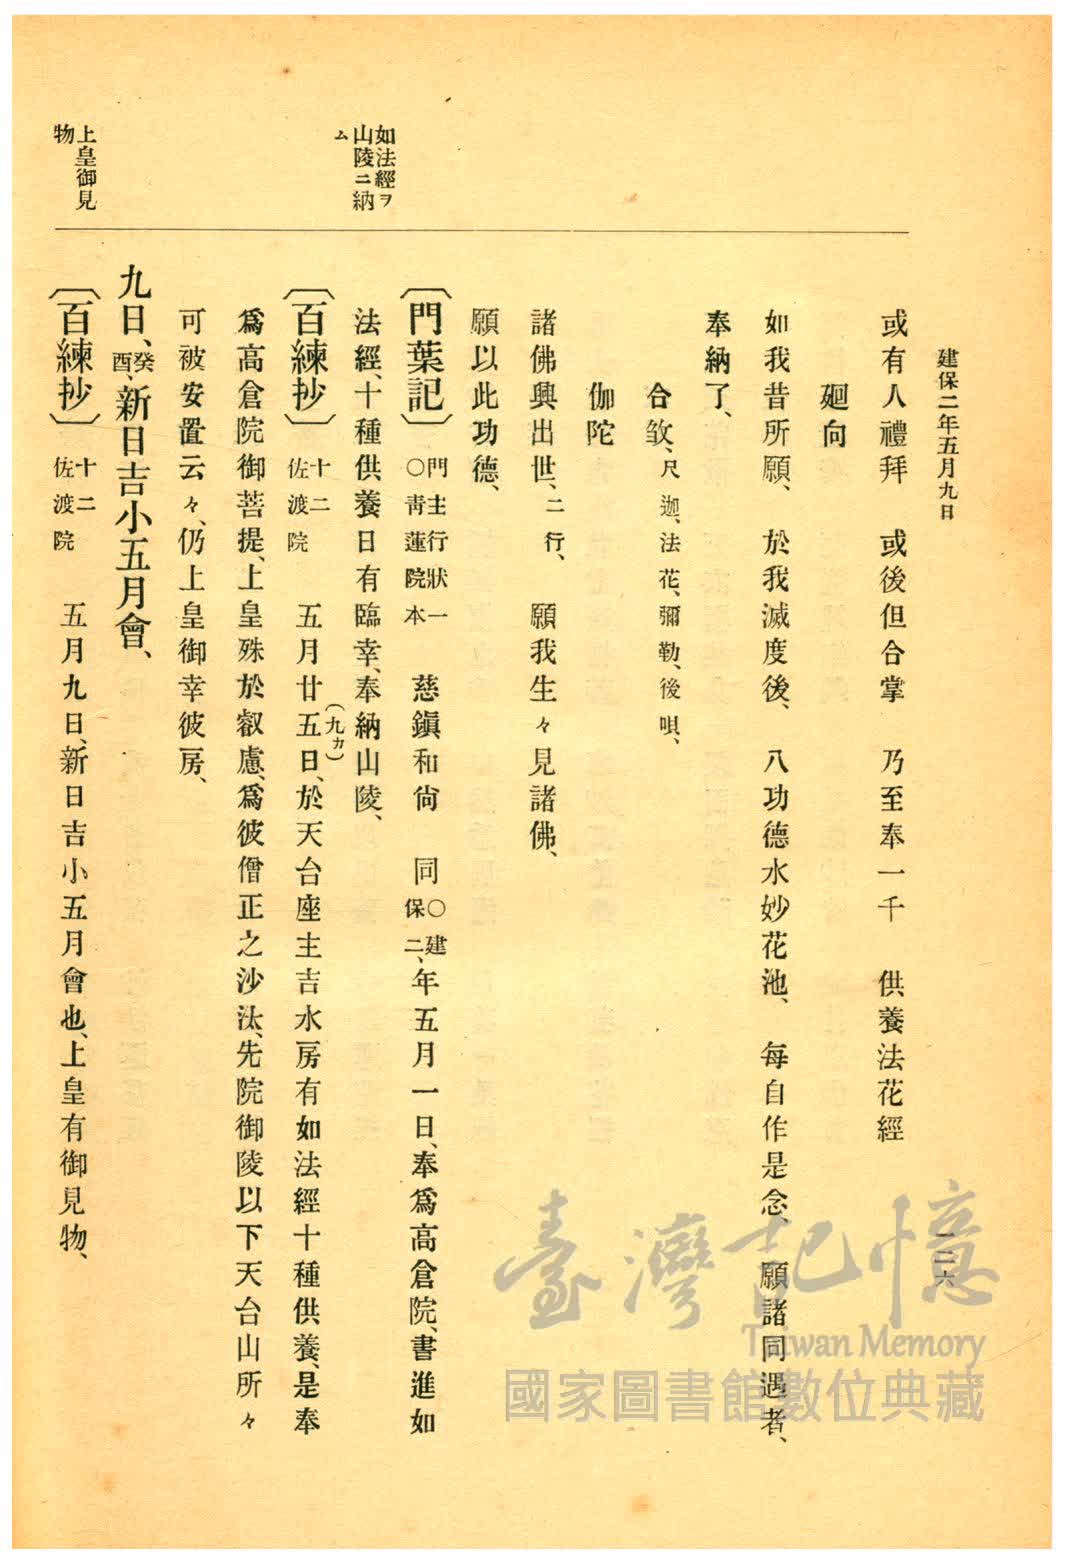 建保二年五月九日
一二六
如法經ヲ
山陵ニ納
ム
上皇御見
物
或有人禮拜　或後但合掌　乃至奉一千　供養法花經
廻向
如我昔所願、　於我滅度後、　八功德水妙花池、　每自作是念、　願諸同遇者、
奉納了、
合敂、尺迦、法花、彌勒、後唄、
伽陀
諸佛興出世、二行、　願我生々見諸佛、
願以此功德、
〔門葉記〕門主行狀一○靑蓮院本　慈鎭和尙　同○建保二、年五月一日、奉爲高倉院、書進如
法經、十種供養日有臨幸、奉納山陵、
〔百練抄〕十二佐渡院　五月廿五(九カ)日、於天台座主吉水房有如法經十種供養、是奉
爲高倉院御菩提、上皇殊於叡慮、爲彼僧正之沙汰、先院御陵以下天台山所々
可被安置云々、仍上皇御幸彼房、
九日、癸酉、新日吉小五月會、
〔百練抄〕十二佐渡院　五月九日、新日吉小五月會也、上皇有御見物、
臺灣記憶
Taiwan Memory
國家圖書館數位典藏